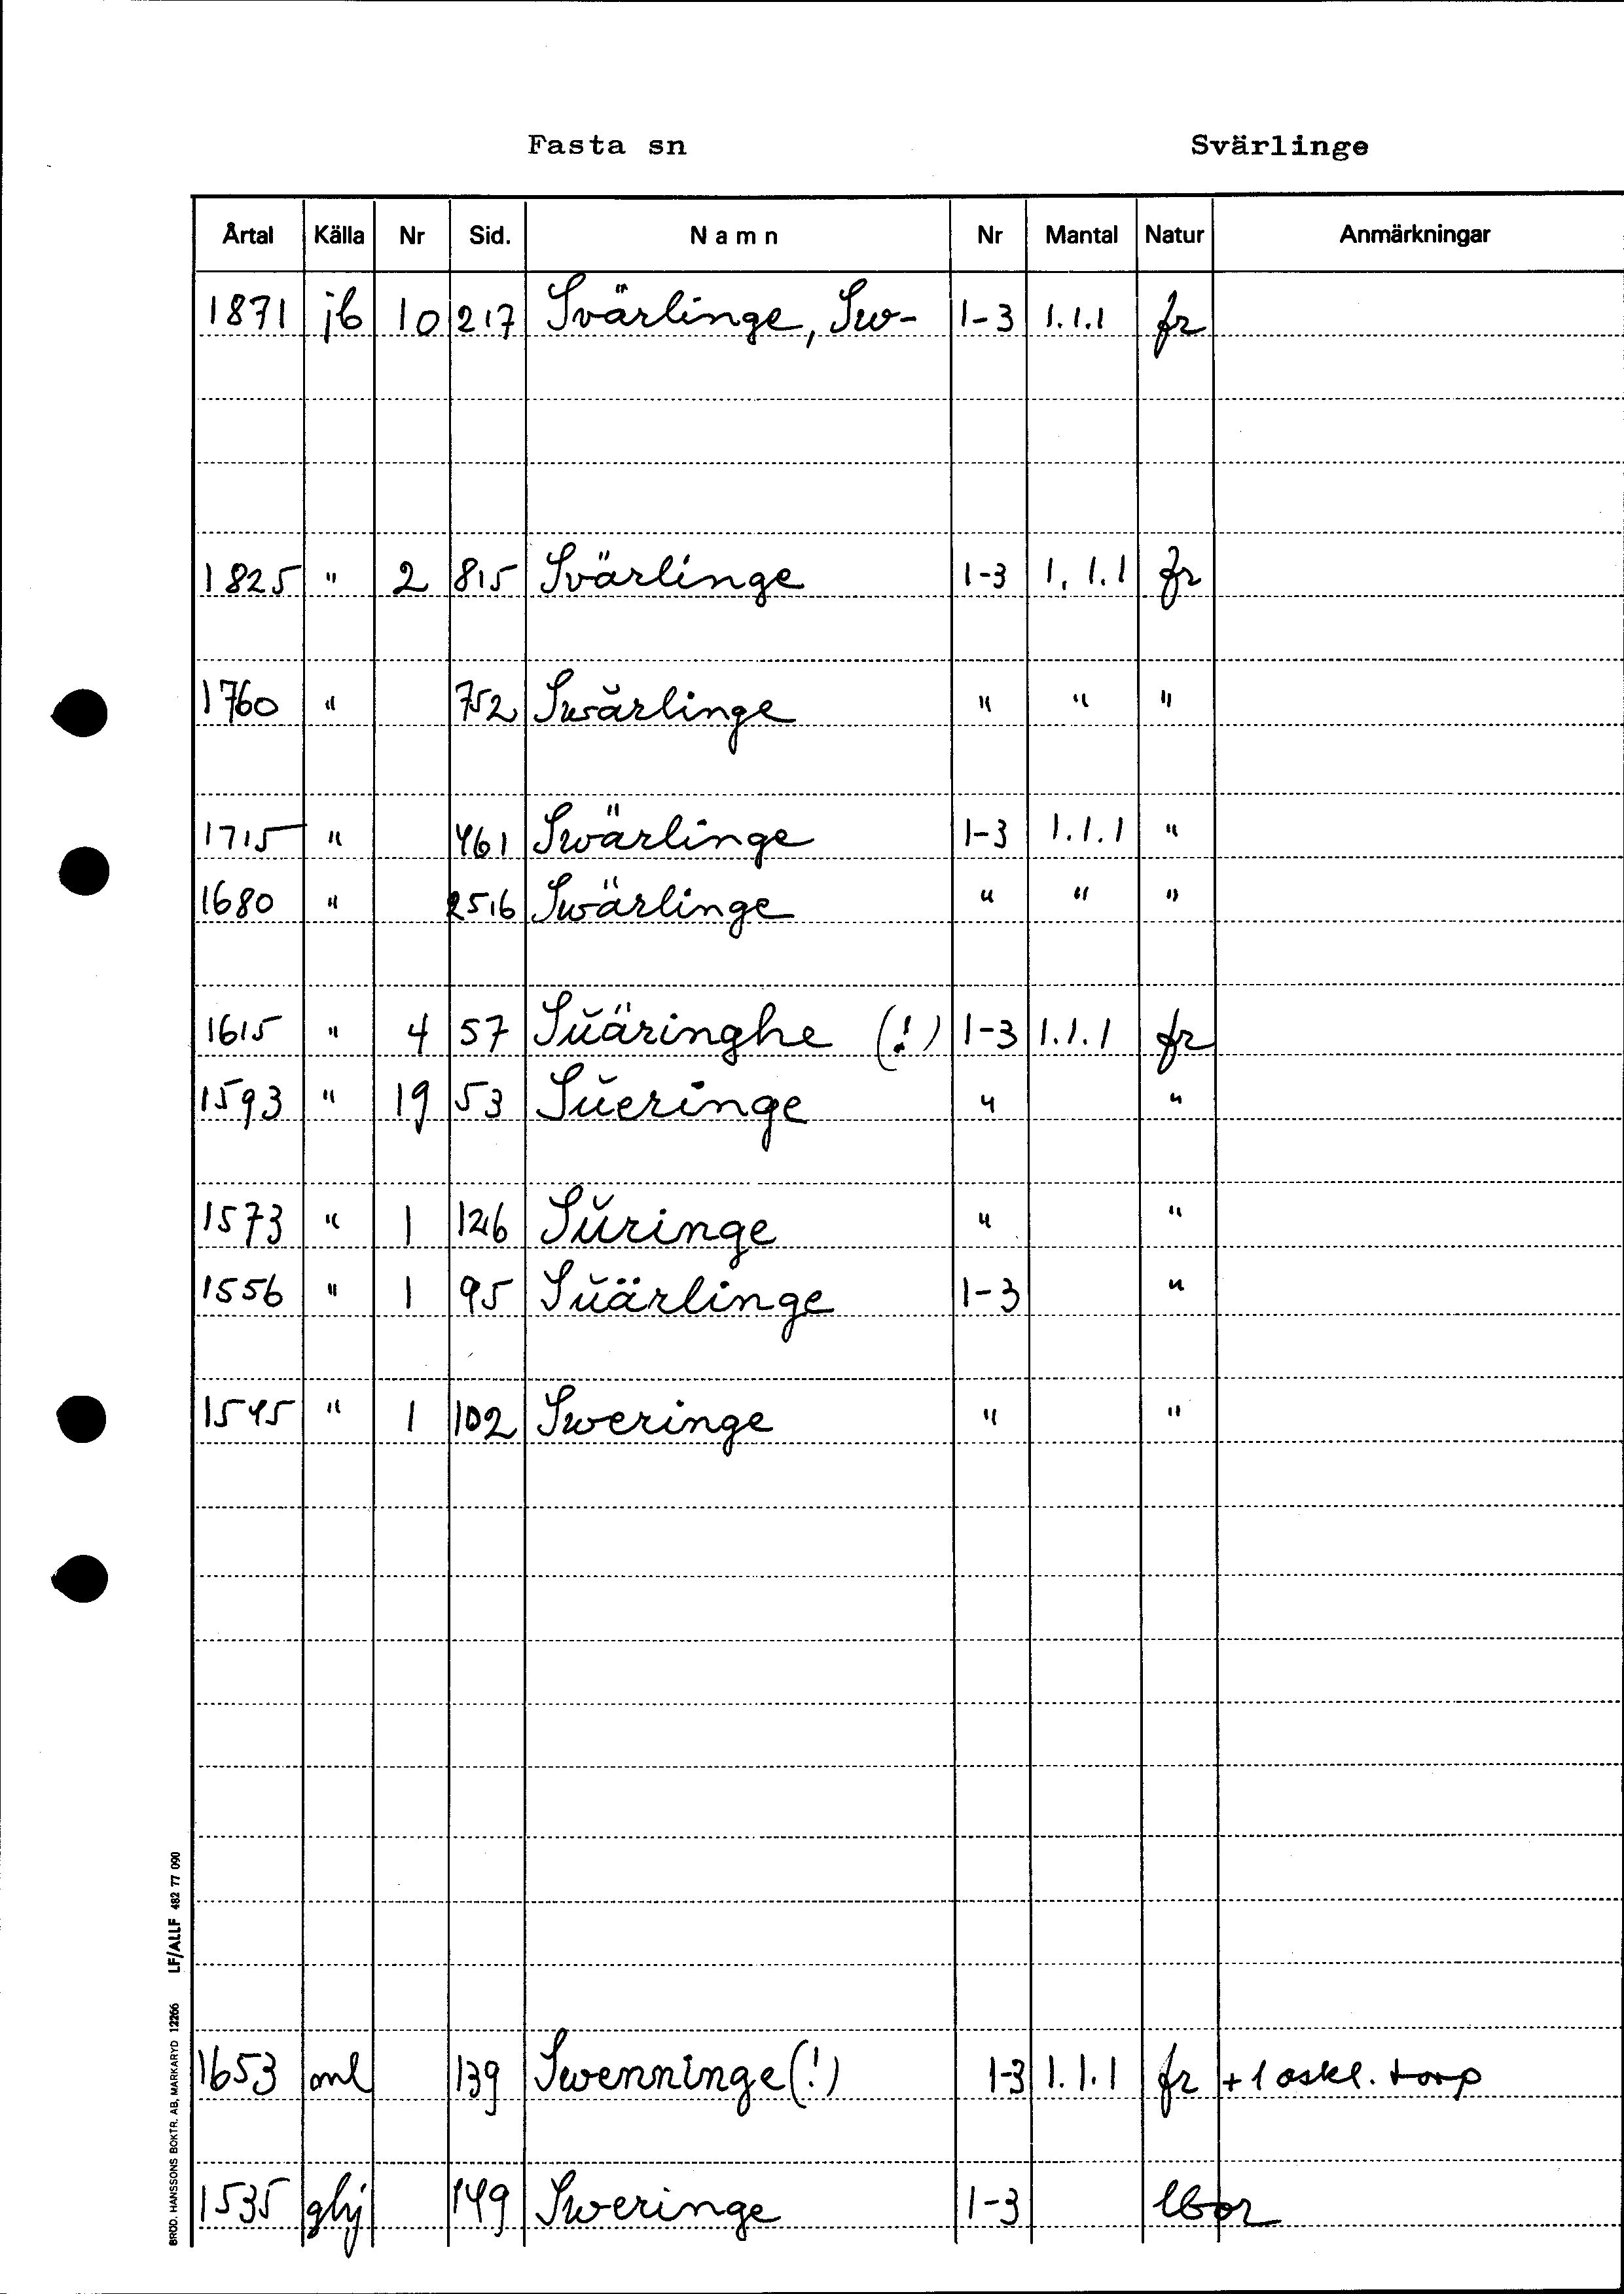 Fasta sn Svärlinge
Årtal Källa Nr Sid. Namn Nr Mantal Natur Anmärkningar
1871 jb 10 217 Svärlinge, Sw- 1-3 1.1.1 fr
1825 " 2 815 Svärlinge 1-3 1.1.1 fr
1760 " 752 Swärlinge " " "
1715 " 461 Swärlinge 1-3 1.1.1 "
1680 " 2516 Swärlinge " " "
1615 " 4 57 Sŭäringhe (!) 1-3 1.1.1 fr
1593 " 19 53 Sŭeringe " "
1573 " 1 126 Sŭringe " "
1556 " 1 95 Sŭärlinge 1-3 "
1545 " 1 102 Sweringe " "
1653 ml 139 Swenninge (!) 1-3 1.1.1 fr + 1 oskl. torp
1535 ghj 149 Sweringe 1-3 lbor
BRÖD. HANSSONS BOKTR. AB, MARKARYD 12266 LF/ALLF 482 77 090